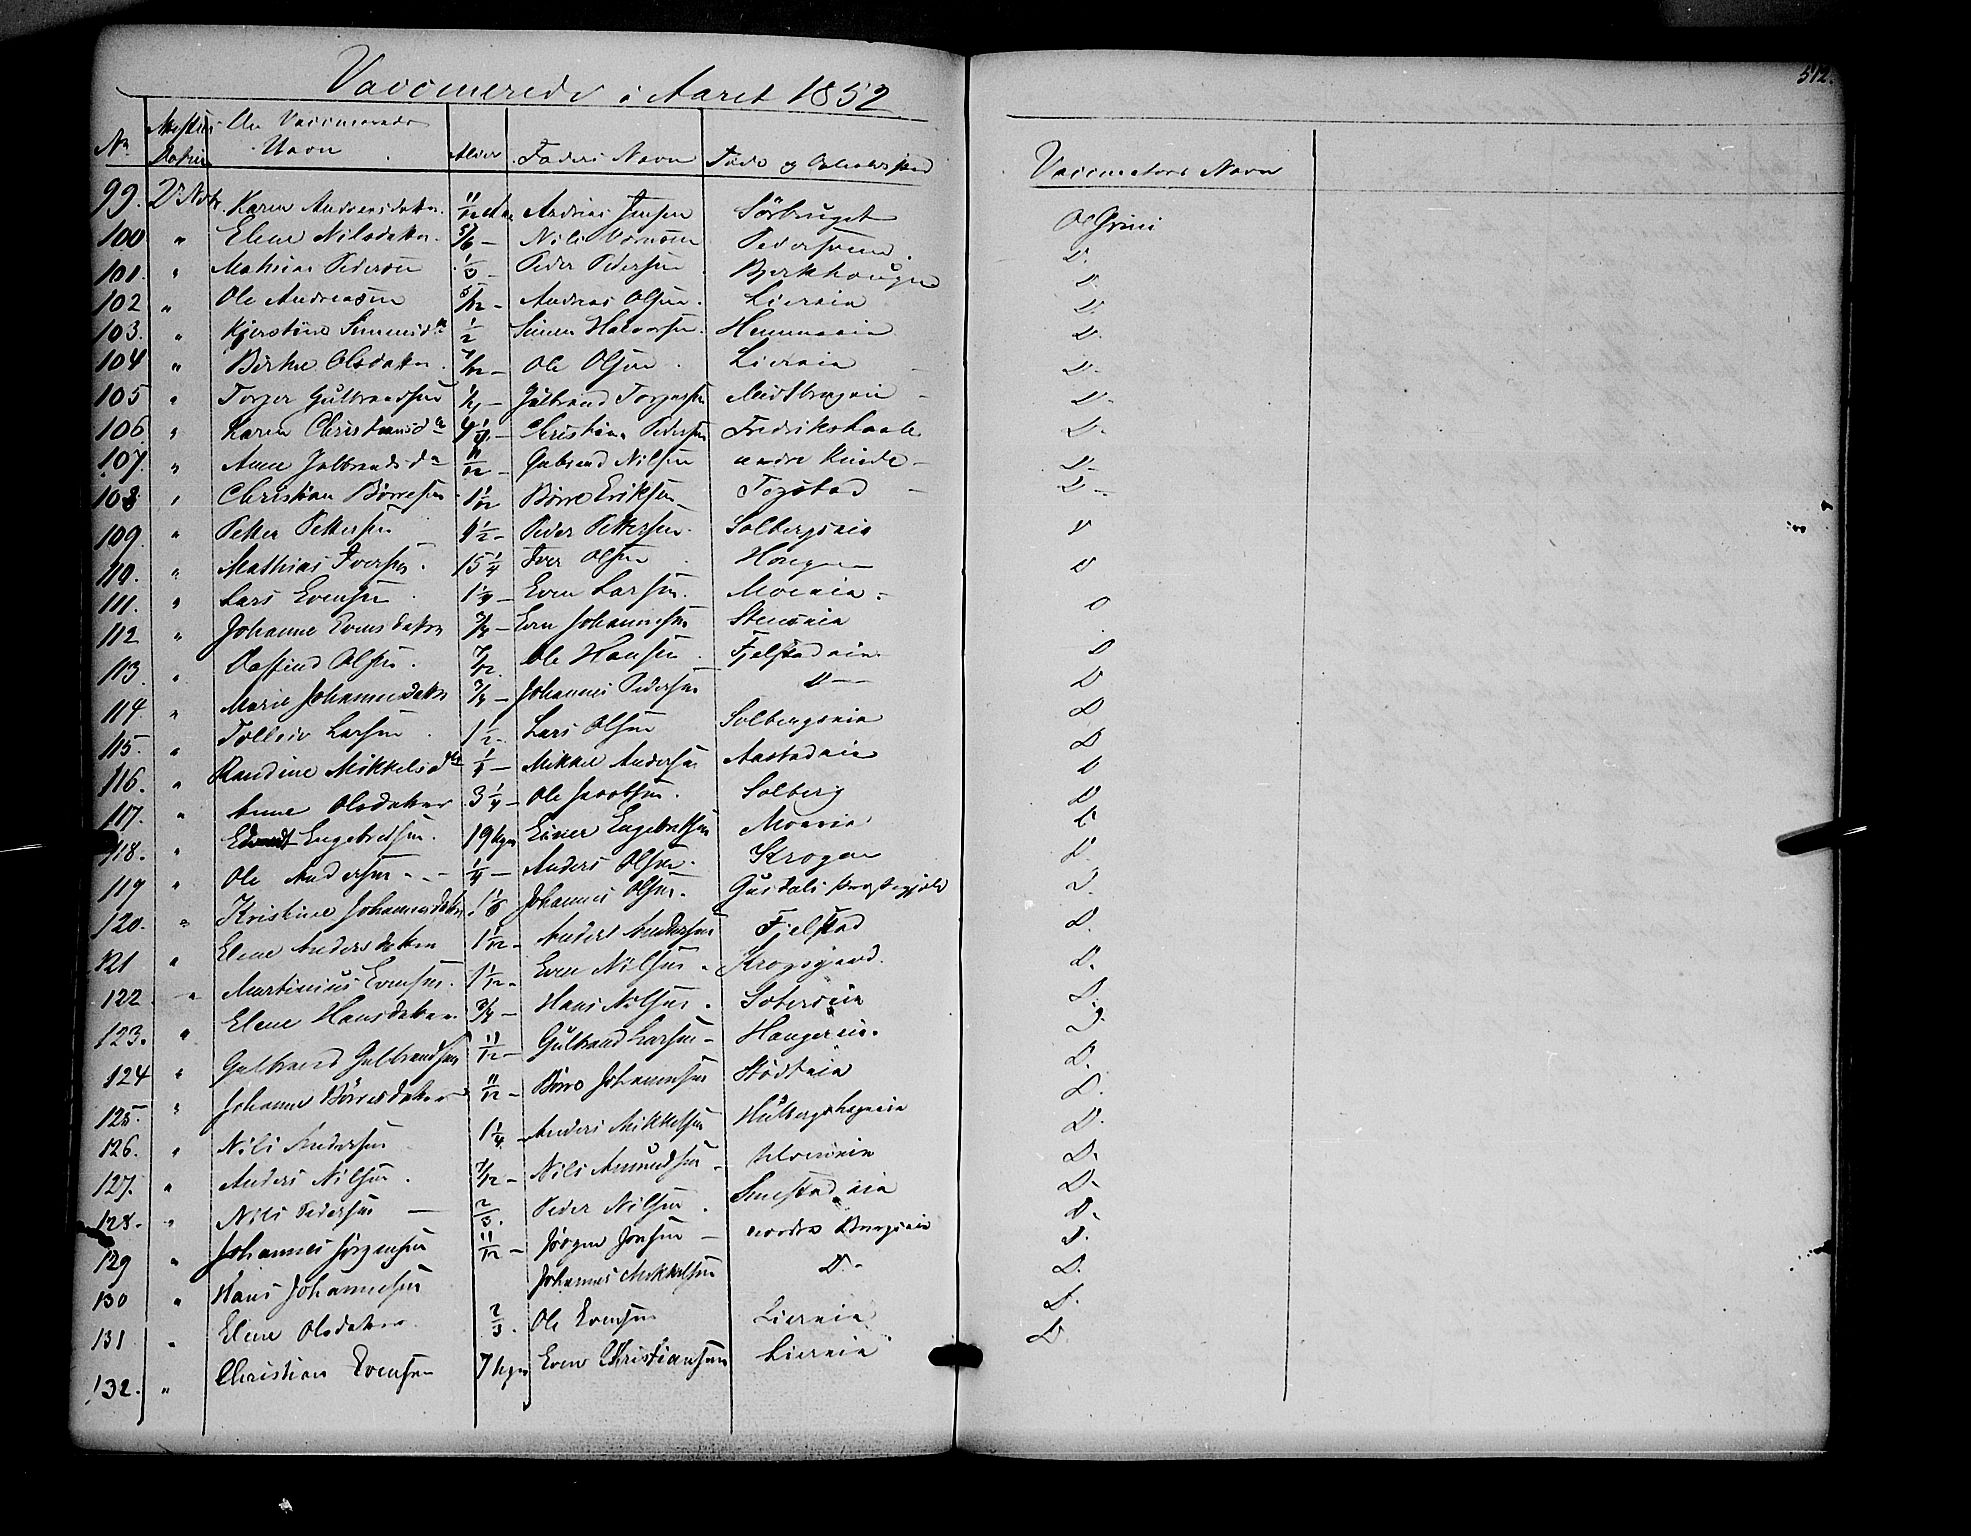 512.
Vaccinerede i Aaret 1852
No Attestens Datum De Vaccineredes Navn Alder Faders Navn Føde og Opholdssted Vaccinators Navn
99. 2 Novbr. Karen Andreasdatter 11/12 Aar Andreas Jensen Sörbruget Ol Grini
100 " Elene Nilsdatter 5/6 - Nils D.
101. " Mathias Pederson 1/3 - Peder Pedersen Bjerkhougen D.
102 " Ole Andreasen 5/12 - Andreas Olsen Liereie D.
103. " Kjerstine Simensd 1/2 Simen Halvorsen D.
104 " Birthe Olsdatter 7/12 - Ole Olsen Liereie D.
105 " Torger Gulbrandsen - Gulbrand Torgersen D.
106 " Karen Christiansd - Christian Pedersen Fredrikshald D.
107. " Anne Gulbrandsd 11/12 - Gulbrand Nilsen D.
108 " Christian Börresen 1 1/12 Börre Eriksen Togstad D.
109. " Petter Pettersen 4 1/2 - Peder Pettersen Solbergseie D
110. " Mathias Iversen 15 1/4 Iver Olsen Hougen D
111. " Lars Evensen 1 1/4 - Even Larsen Moeneie D
112 " Johanne Evensdatter 3/4 - Even Johannesen Steenseie D
113. " Olsen 7/12 Ole Hansen Fjelstadeie D
114. " Marie Johannesdatter 3/4 - Johannes Pedersen D D
115. " Tolleiv Larsen 1 1/2 - Lars Olsen Solbergseie D
116. " Randine Mikkelsdtr 1/4 - Mikkel Andersen Aastadeie D
117. " Anne Olsdatter 3 1/4 - Ole Jacobsen Solberg D
118. " Engebretsen 19 Uger Einer Engebretsen Moeneie D
119 " Ole Andersen 1/4 - Anders Olsen Krogen D.
120. " Kristine Johannesdatter 1 1/3 Johannes Olsen Præstegjeld D.
121 " Elene Andersdatter 1 1/12 - Anders Andersen Fjelstad D.
122 " Martinius Evensen 1 1/12 - Even Nilsen Krogsgaard. D.
123. " Elene Hansdatter 3/4 - Hans Nilsen D.
124 " Gulbrand Gulbrandsen 11/12 - Gulbrand Larsen Haugereie D.
125 " Johanne Börresdatter 11/12 - Börre Johannesen D.
126. " Nils Andersen 1 1/4 Anders Mikkelsen D.
127. " Anders Nilsen 7/12 - Nils Amundsen D.
128. " Nils Pedersen 2/3 Peder Nilsen Smestadeie D.
129 " Johannes Jörgensen 11/12 - Jörgen Jonsen nordre D.
130 " Hans Johannesen Johannes Mikkelsen D. D.
131 " Elene Olsdatter 2/3 Ole Evensen Liereie D.
132. " Christian Evensen 7 Uger Even Christiansen Liereie D.